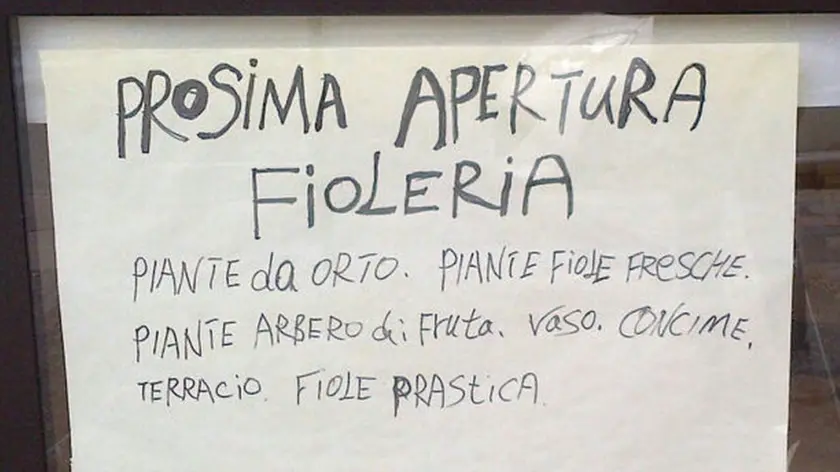 PROSIMA APERTURA
FIOLERIA
PIANTE da ORTO. PIANTE FIOLE FRESCHE.
PIANTE ARBERO di FRUTA. VASO. CONCIME.
TERRACIO. FIOLE PRASTICA.